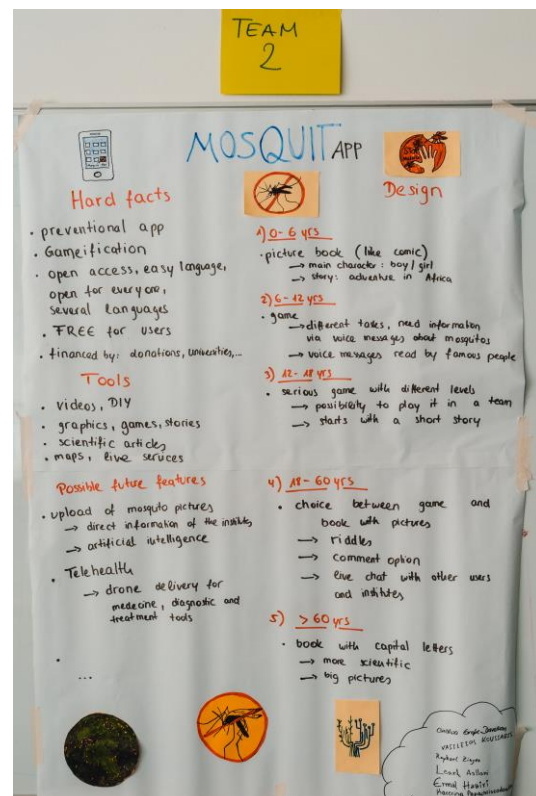 TEAM
2
MOSQUIT APP
Hard facts
. preventional app
. Gameification
. open access, easy language,
open for everyone,
several languages
. FREE for users
. financed by: donations, universities,...
Tools
. videos, DIY
. graphics, games, stories
. scientific articles
. maps, live services
Possible future features
. upload of mosquito pictures
→ direct information of the institutes
→ artificial intelligence
. Telehealth
→ drone delivery for
medecine, diagnostic and
treatment tools
.
...
Design
1) 0-6 yrs
. picture book (like comic)
→ main character: boy/girl
→ story: adventure in Africa
2) 6-12 yrs
. game
→ different tasks, need information
via voice messages about mosquitos
→ voice messages read by famous people
3) 12-18 yrs
. serious game with different levels
→ possibility to play it in a team
→ starts with a short story
4) 18-60 yrs
. choice between game and
book with pictures
→ riddles
→ comment option
→ live chat with other users
and institutes
5) >60 yrs
. book with capital letters
→ more scientific
→ big pictures